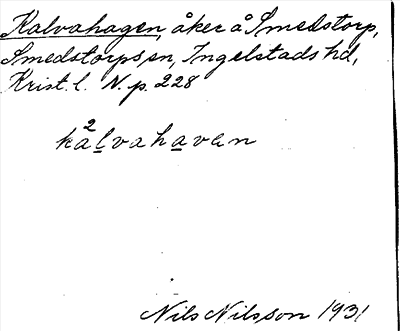 Kalvahagen, åker å Smedstorp,
Smedstorps sn, Ingelstads hd,
Krist. l. N. p. 228
2
kalvahaven
Nils Nilsson 1931